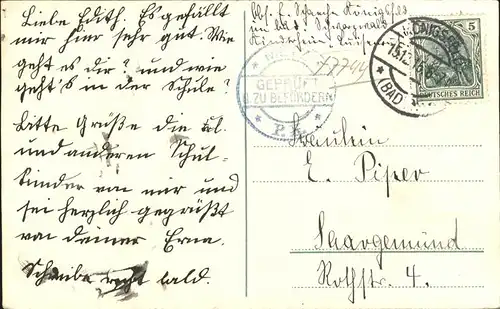 Liebe Edith. Es gefällt
mir hier sehr gut. Wie
geht es dir? und wie
geht's in der Schule?
Bitte Grüße die
und anderen Schul-
kinder von mir und
sei herzlich gegrüßt
von deiner Erna.
Schreibe recht bald.
Abs. E. Königsfeld
im bad. Schwarzwald
Kinderheim
GEPRÜFT
ZU BEFÖRDERN
P.K.
KÖNIGSFELD
BAD
5
DEUTSCHES REICH
Fräulein
E. Piper
Saargemünd
Rothstr. 4.